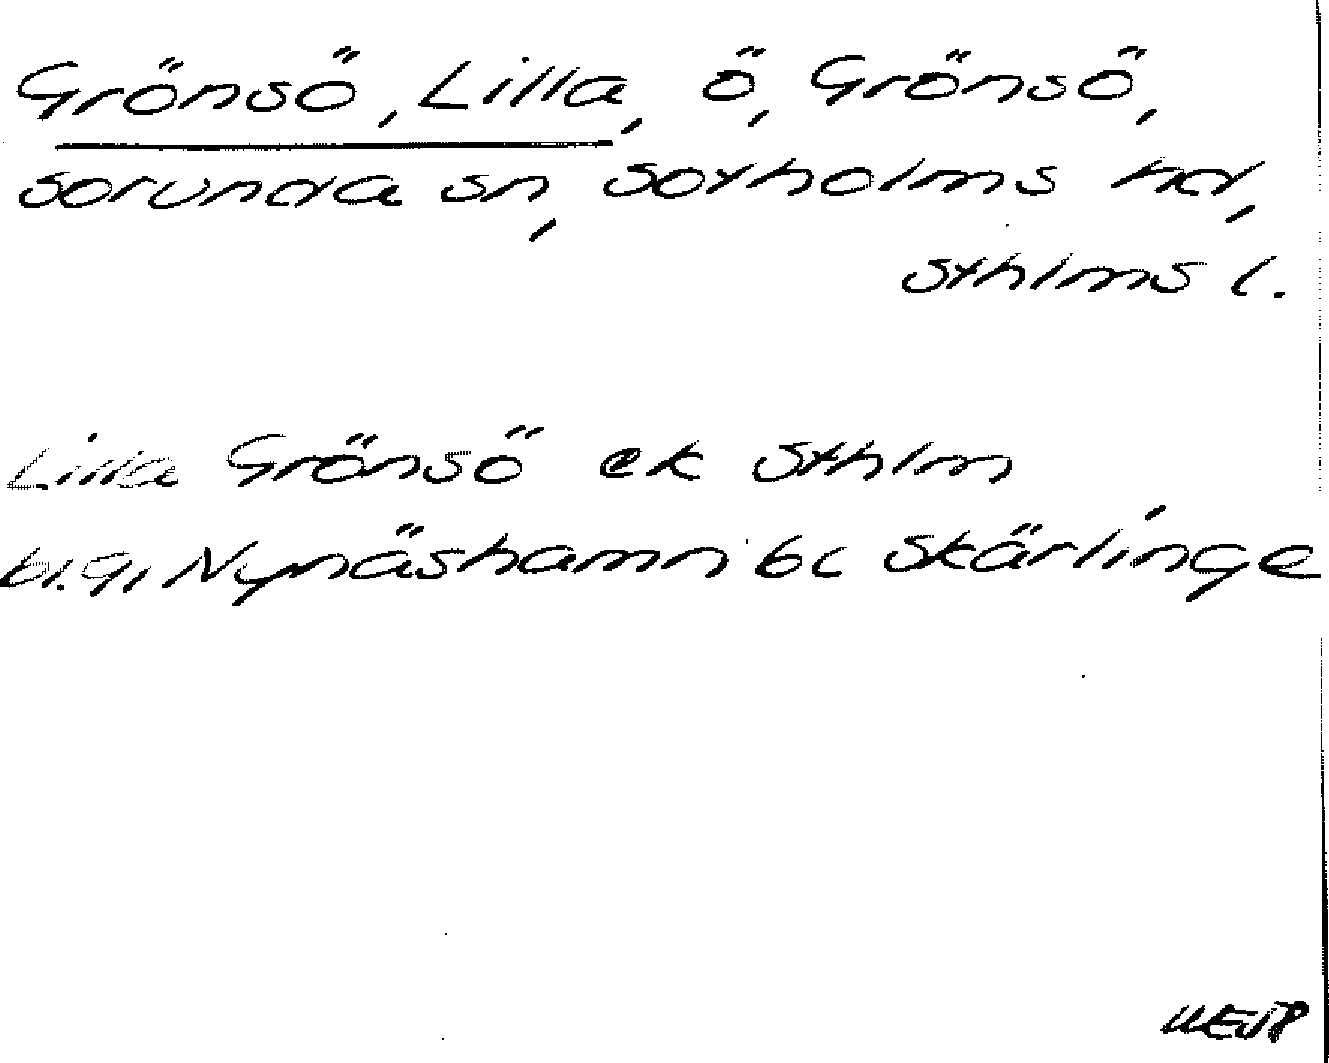 Grönsö, Lilla, ö, Grönsö,
Sorunda sn, Sotholms hd,
Sthlms l.
Lilla Grönsö ek Sthlm
bl.91 Nynäshamn 6c Skärlinge